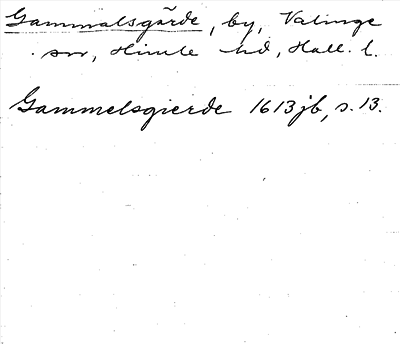 Gammalsgärde, by, Valinge
sn, Himle hd, Hall. l.
Gammelsgierde 1613 jb, s. 13.